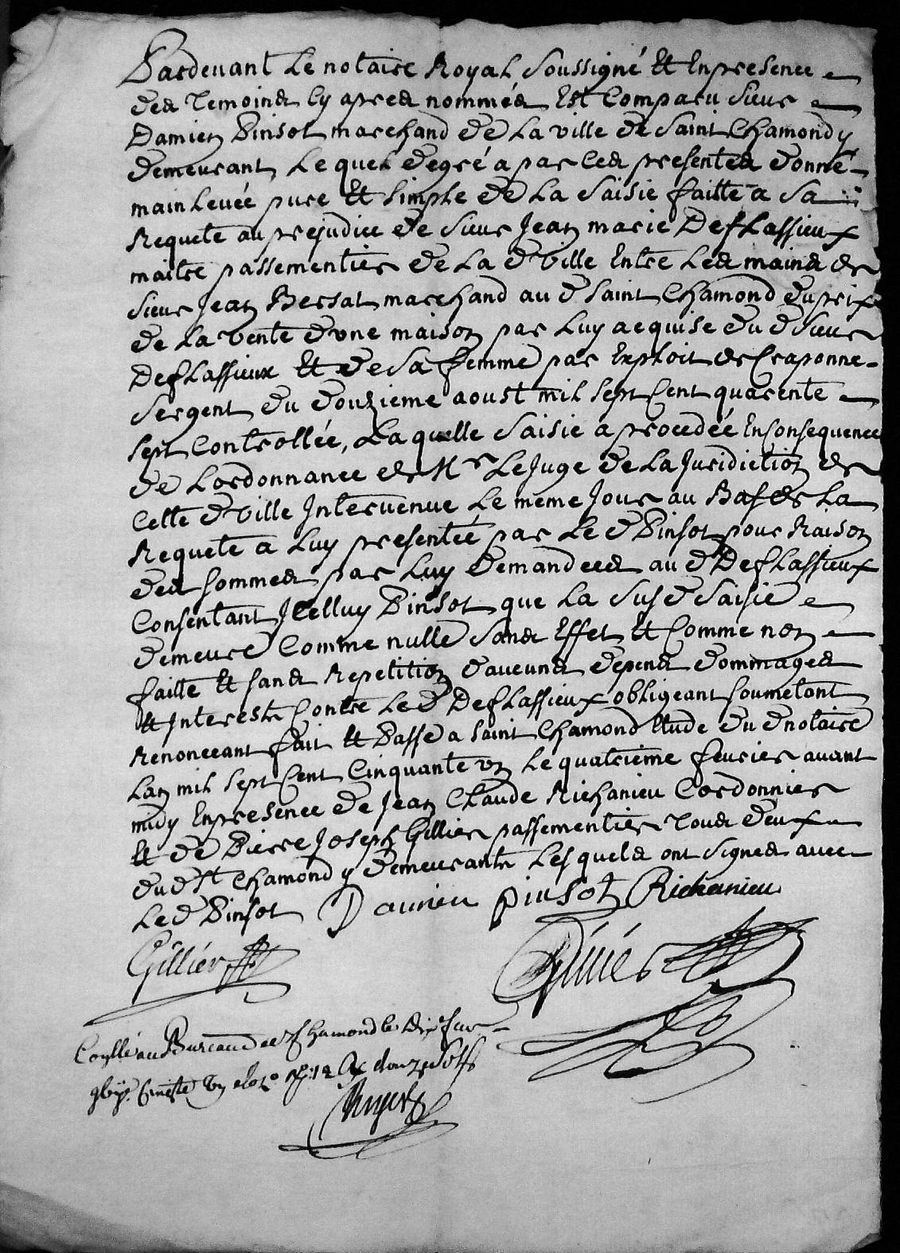 Pardevant Le notaire Royal Soussigné Et Enpresence
des Temoins Cy apres nommés Est Comparu Sieur
Damien Pinsot marchand de La ville de Saint Chamond y
demeurant, Le quel degré a par Ces presentes donné
main Levée pure Et Simple de La Saisie faitte a Sa
Requete au prejudice de Sieur Jean marie Deflassieux
maitre passementier de La d ville Entre Les mains de
Sieur Jean Bersat marchand au d Saint Chamond du prix
de La vente d'une maison par Luy acquise du d Sieur
Deflassieux Et de Sa femme par Exploit de Craponne
Sergent du douzieme aoust mil Sept Cent quarente
Sept Controllée, La quelle Saisie a procedée En Consequence
de Lordonnance de Mr Le Juge de La Juridiction de
Cette d ville Intervenue Le même Jour au Bas de La
Requete a Luy presentée par Le d Pinsot pour Raison
des Sommes par Luy demandees au d Deflassieux
Consentant Icelluy Pinsot que La Susd Saisie
demeure Comme nulle Sans Effet Et Comme non
faitte Et Sans Repetition d'aucuns depens dommages
Et Interests Contre Le d Deflassieux obligeant Soumetant
Renonceant fait Et Passé a Saint Chamond Etude du d notaire
Lan mil Sept Cent Cinquante un Le quatrieme fevrier avant
midy Enpresence de Jean Claude Richanieu Cordonnier
Et de Pierre Joseph Gillier passementier Tous deux
du d St Chamond y demeurants Lesquels ont Signes avec
Le d Pinsot Damien pinsot Richanieu
Gillier
Conllé au Bureau de St Chamond le
douze Sols